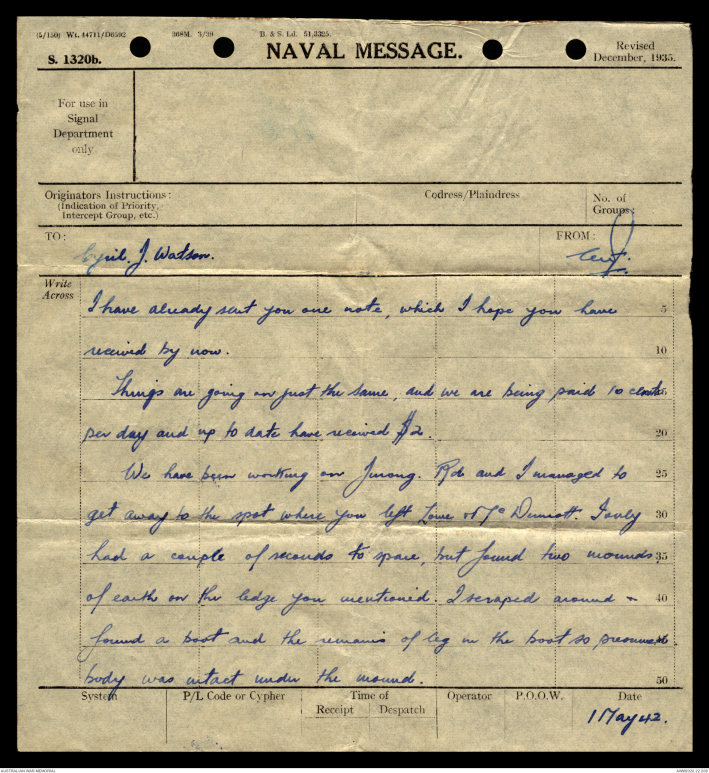 (5/150) Wt. 44711/D6592 368M. 3/39 B. & S. Ld. 51,3325.
S. 1320b.
NAVAL MESSAGE.
Revised
December, 1935.
For use in
Signal
Department
only
Originators Instructions:
(Indication of Priority,
Intercept Group, etc.)
Codress/Plaindress
No. of
Groups:
TO:
Cyril. J. Watson.
FROM:
Write
Across
I have already sent you one note, which I hope you have
5
received by now.
10
Things are going on just the same, and we are being paid 10 cents
per day and up to date have received $2.
20
We have been working on Jurong. Rd and I managed to
25
get away to the spot where you left Lowe & Mc Dermott. I only
30
had a couple of seconds to spare, but found two mounds
35
of earth on the ledge you mentioned. I scraped around &
40
found a boot and the remains of leg in the boot so presumed
body was intact under the mound.
50
System
P/L Code or Cypher
Time of
Receipt
Despatch
Operator
P.O.O.W.
Date
1 May 42.
AUSTRALIAN WAR MEMORIAL